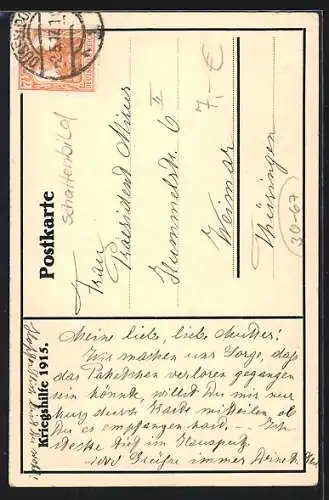 Postkarte
Kriegshilfe 1915.
Schattenbild
Frau
Praesident Minus
Hummelstr. 6 II
Weimar
Thüringen
7,- €
(30-67)
Meine liebe, liebe Mutter!
Wir machen uns Sorge, daß
das Paketchen verloren gegangen
sein könnte, willst Du mir nur
kurz durch Karte mitteilen ob
Du es empfangen hast. — Ich
stecke tief in
Grüße immer Deine